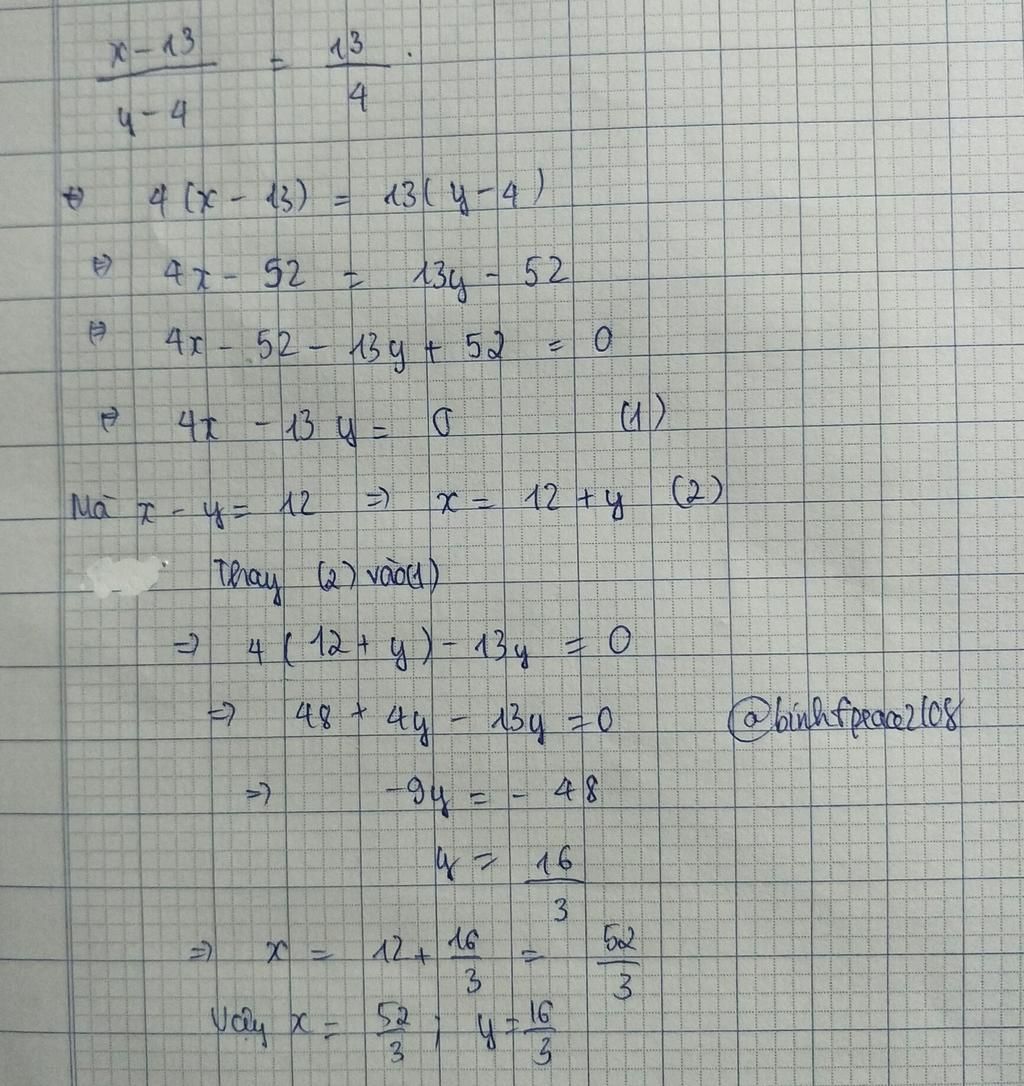 x - 13 / y - 4 = 13 / 4 .
⇔ 4(x - 13) = 13(y - 4)
⇔ 4x - 52 = 13y - 52
⇔ 4x - 52 - 13y + 52 = 0
⇔ 4x - 13y = 0 (1)
Mà x - y = 12 ⇒ x = 12 + y (2)
Thay (2) vào (1)
⇒ 4(12 + y) - 13y = 0
⇒ 48 + 4y - 13y = 0
⇒ -9y = - 48
y = 16 / 3
⇒ x = 12 + 16 / 3 = 52 / 3
Vậy x = 52 / 3 ; y = 16 / 3